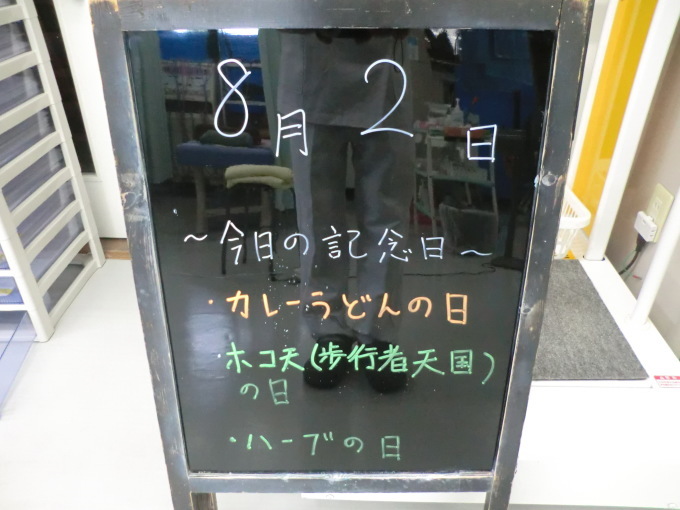 8月 2日
～今日の記念日～
・カレーうどんの日
・ホコ天(歩行者天国)
の日
・ハーブの日